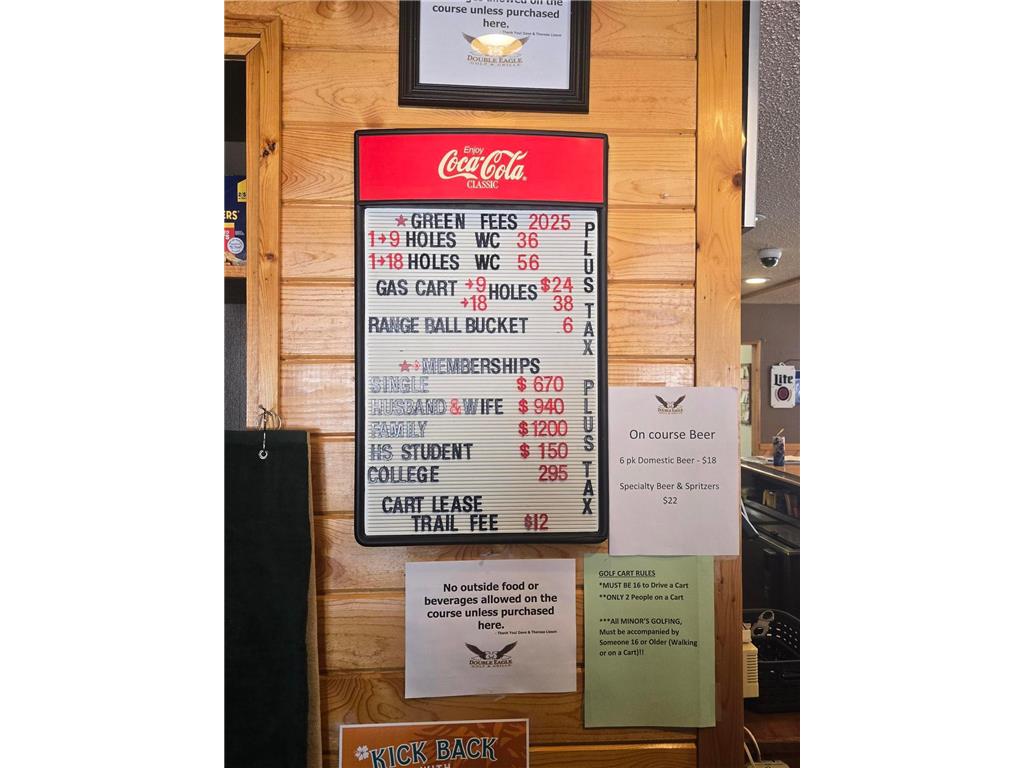 course unless purchased
here.
- Thank You! Dave & Theresa Lisson
DOUBLE EAGLE
GOLF & GRILLE
Enjoy
Coca-Cola
CLASSIC
GREEN FEES 2025
1→9 HOLES WC 36
1→18 HOLES WC 56
GAS CART →9 HOLES $24
→18 38
RANGE BALL BUCKET 6
PLUS TAX
MEMBERSHIPS
SINGLE $ 670
HUSBAND & WIFE $ 940
FAMILY $1200
HS STUDENT $ 150
COLLEGE 295
PLUS TAX
CART LEASE
TRAIL FEE $12
Lite
DOUBLE EAGLE
On course Beer
6 pk Domestic Beer - $18
Specialty Beer & Spritzers
$22
No outside food or
beverages allowed on the
course unless purchased
here.
- Thank You! Dave & Theresa Lisson
DOUBLE EAGLE
GOLF & GRILLE
GOLF CART RULES
*MUST BE 16 to Drive a Cart
**ONLY 2 People on a Cart
***All MINOR'S GOLFING,
Must be accompanied by
Someone 16 or Older (Walking
or on a Cart)!!
KICK BACK
WITH